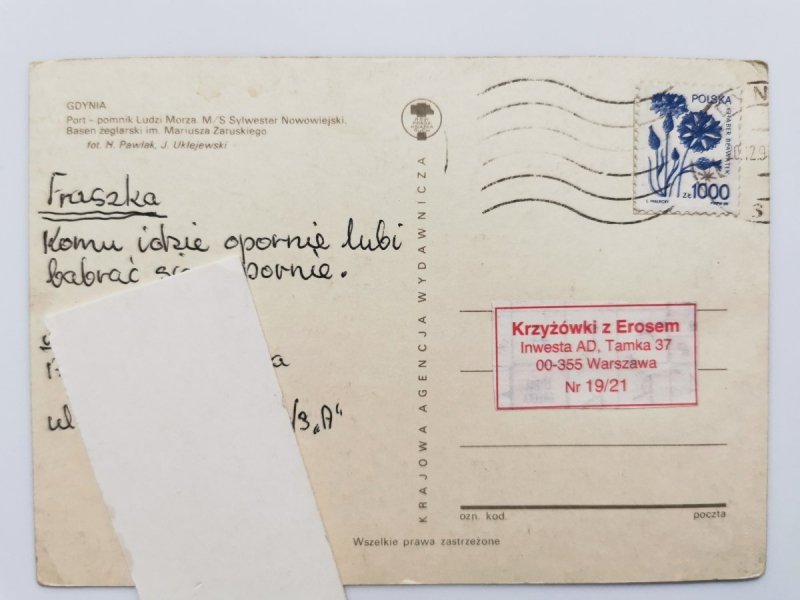 GDYNIA
Port - pomnik Ludzi Morza. M/S Sylwester Nowowiejski.
Basen żeglarski im. Mariusza Zaruskiego
fot. N. Pawlak, J. Uklejewski
Fraszka
Komu idzie opornie lubi
babrać się pornie.
ul
/3 „A"
KRAJOWA AGENCJA WYDAWNICZA
POLSKA
CHABER BŁAWATEK
ZŁ 1000
Krzyżówki z Erosem
Inwesta AD, Tamka 37
00-355 Warszawa
Nr 19/21
ozn. kod. poczta
Wszelkie prawa zastrzeżone